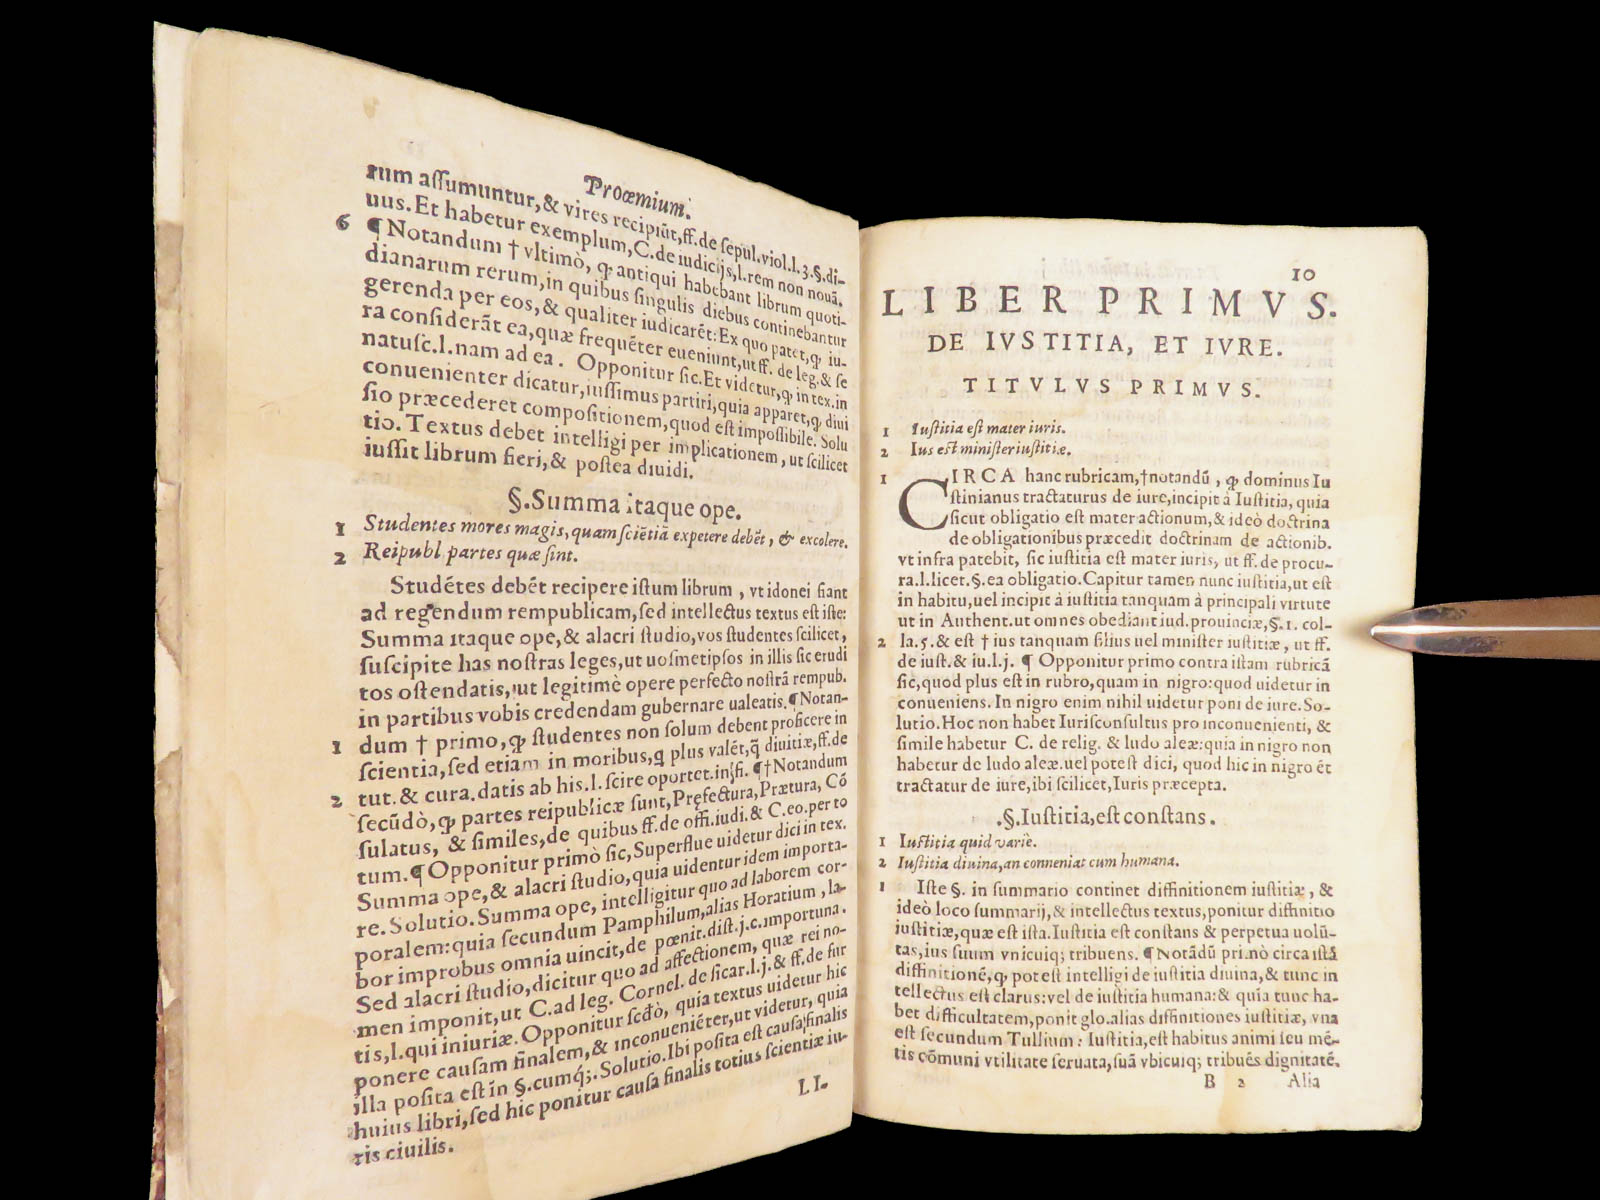 Proœmium.
rum aſſumuntur, & vires recipiũt, ff. de ſepul. viol. l. 3. §. di-
uus. Et habetur exemplum, C. de iudicijs, l. rem non nouã.
6 ¶ Notandum † vltimò, ꝙ antiqui habebant librum quoti-
dianarum rerum, in quibus ſingulis diebus continebantur
gerenda per eos, & qualiter iudicarẽt: Ex quo patet, ꝙ iu-
ra conſiderãt ea, quæ frequẽter eueniunt, ut ff. de leg. & ſe
natuſc. l. nam ad ea. Opponitur ſic. Et videtur, ꝙ in tex. in
conuenienter dicatur, iuſſimus partiri, quia apparet, ꝙ diui
ſio præcederet compoſitionem, quod eſt impoſſibile. Solu
tio. Textus debet intelligi per implicationem, ut ſcilicet
iuſſit librum fieri, & poſtea diuidi.
§. Summa itaque ope.
1 Studentes mores magis, quam ſciẽtiã expetere debẽt, & excolere.
2 Reipubl partes quæ ſint.
Studẽtes debẽt recipere iſtum librum, vt idonei fiant
ad regendum rempublicam, ſed intellectus textus eſt iſte:
Summa itaque ope, & alacri ſtudio, vos ſtudentes ſcilicet,
ſuſcipite has noſtras leges, ut uoſmetipſos in illis ſic erudi
tos oſtendatis, ut legitimè opere perfecto noſtrã rempub.
in partibus vobis credendam gubernare ualeatis. ¶ Notan-
1 dum † primo, ꝙ ſtudentes non ſolum debent proficere in
ſcientia, ſed etiam in moribus, ꝗ plus valẽt, ꝗ̃ diuitiæ, ff. de
tut. & cura. datis ab his. l. ſcire oportet. in fi. ¶ † Notandum
2 ſecũdò, ꝙ partes reipublicæ ſunt, Præfectura, Prætura, Cõ
ſulatus, & ſimiles, de quibus ff. de offi. iudi. & C. eo. per to
tum. ¶ Opponitur primò ſic, Superflue uidetur dici in tex.
Summa ope, & alacri ſtudio, quia uidentur idem importa-
re. Solutio. Summa ope, intelligitur quo ad laborem cor-
poralem: quia ſecundum Pamphilum, alias Horatium, la-
bor improbus omnia uincit, de pœnit. diſt. j. c. importuna.
Sed alacri ſtudio, dicitur quo ad affectionem, quæ rei no-
men imponit, ut C. ad leg. Cornel. de ſicar. l. j. & ff. de fur
tis, l. qui iniuriæ. Opponitur ſcđò, quia textus uidetur hic
ponere cauſam finalem, & inconueniẽter, ut videtur, quia
illa poſita eſt in §. cumꝗ;. Solutio. Ibi poſita eſt cauſa finalis
huius libri, ſed hic ponitur cauſa finalis totius ſcientiæ iu-
ris ciuilis.
LI-
10
LIBER PRIMVS.
DE IVSTITIA, ET IVRE.
TITVLVS PRIMVS.
1 Iuſtitia eſt mater iuris.
2 Ius eſt miniſter iuſtitiæ.
1 CIRCA hanc rubricam, † notandũ, ꝙ dominus Iu
ſtinianus tractaturus de iure, incipit à Iuſtitia, quia
ſicut obligatio eſt mater actionum, & ideò doctrina
de obligationibus præcedit doctrinam de actionib.
vt infra patebit, ſic iuſtitia eſt mater iuris, ut ff. de procu-
ra. l. licet. §. ea obligatio. Capitur tamen nunc iuſtitia, ut eſt
in habitu, uel incipit à iuſtitia tanquam à principali virtute
ut in Authent. ut omnes obediant iud. prouinciæ, §. 1. col-
2 la. 5. & eſt † ius tanquam filius uel miniſter iuſtitiæ, ut ff.
de iuſt. & iu. l. j. ¶ Opponitur primo contra iſtam rubricã
ſic, quod plus eſt in rubro, quam in nigro: quod uidetur in
conueniens. In nigro enim nihil uidetur poni de iure. So-
lutio. Hoc non habet Iuriſconſultus pro inconuenienti, &
ſimile habetur C. de relig. & ludo aleæ: quia in nigro non
habetur de ludo aleæ. uel poteſt dici, quod hic in nigro ẽt
tractatur de iure, ibi ſcilicet, Iuris præcepta.
.§. Iuſtitia, eſt conſtans.
1 Iuſtitia quid variè.
2 Iuſtitia diuina, an conneniat cum humana.
1 Iſte §. in ſummario continet diffinitionem iuſtitiæ, &
ideò loco ſummarij, & intellectus textus, ponitur diffinitio
iuſtitiæ, quæ eſt iſta. Iuſtitia eſt conſtans & perpetua uolũ-
tas, ius ſuum vnicuiq; tribuens. ¶ Notãdũ primò circa iſtã
diffinitionẽ, ꝙ poteſt intelligi de iuſtitia diuina, & tunc in
tellectus eſt clarus: vel de iuſtitia humana: & quia tunc ha-
bet difficultatem, ponit glo. alias diffinitiones iuſtitiæ, vna
eſt ſecundum Tullium: Iuſtitia, eſt habitus animi ſeu mẽ-
tis cõmuni vtilitate ſeruata, ſuã vbicuiq; tribuẽs dignitatẽ.
B 2 Alia